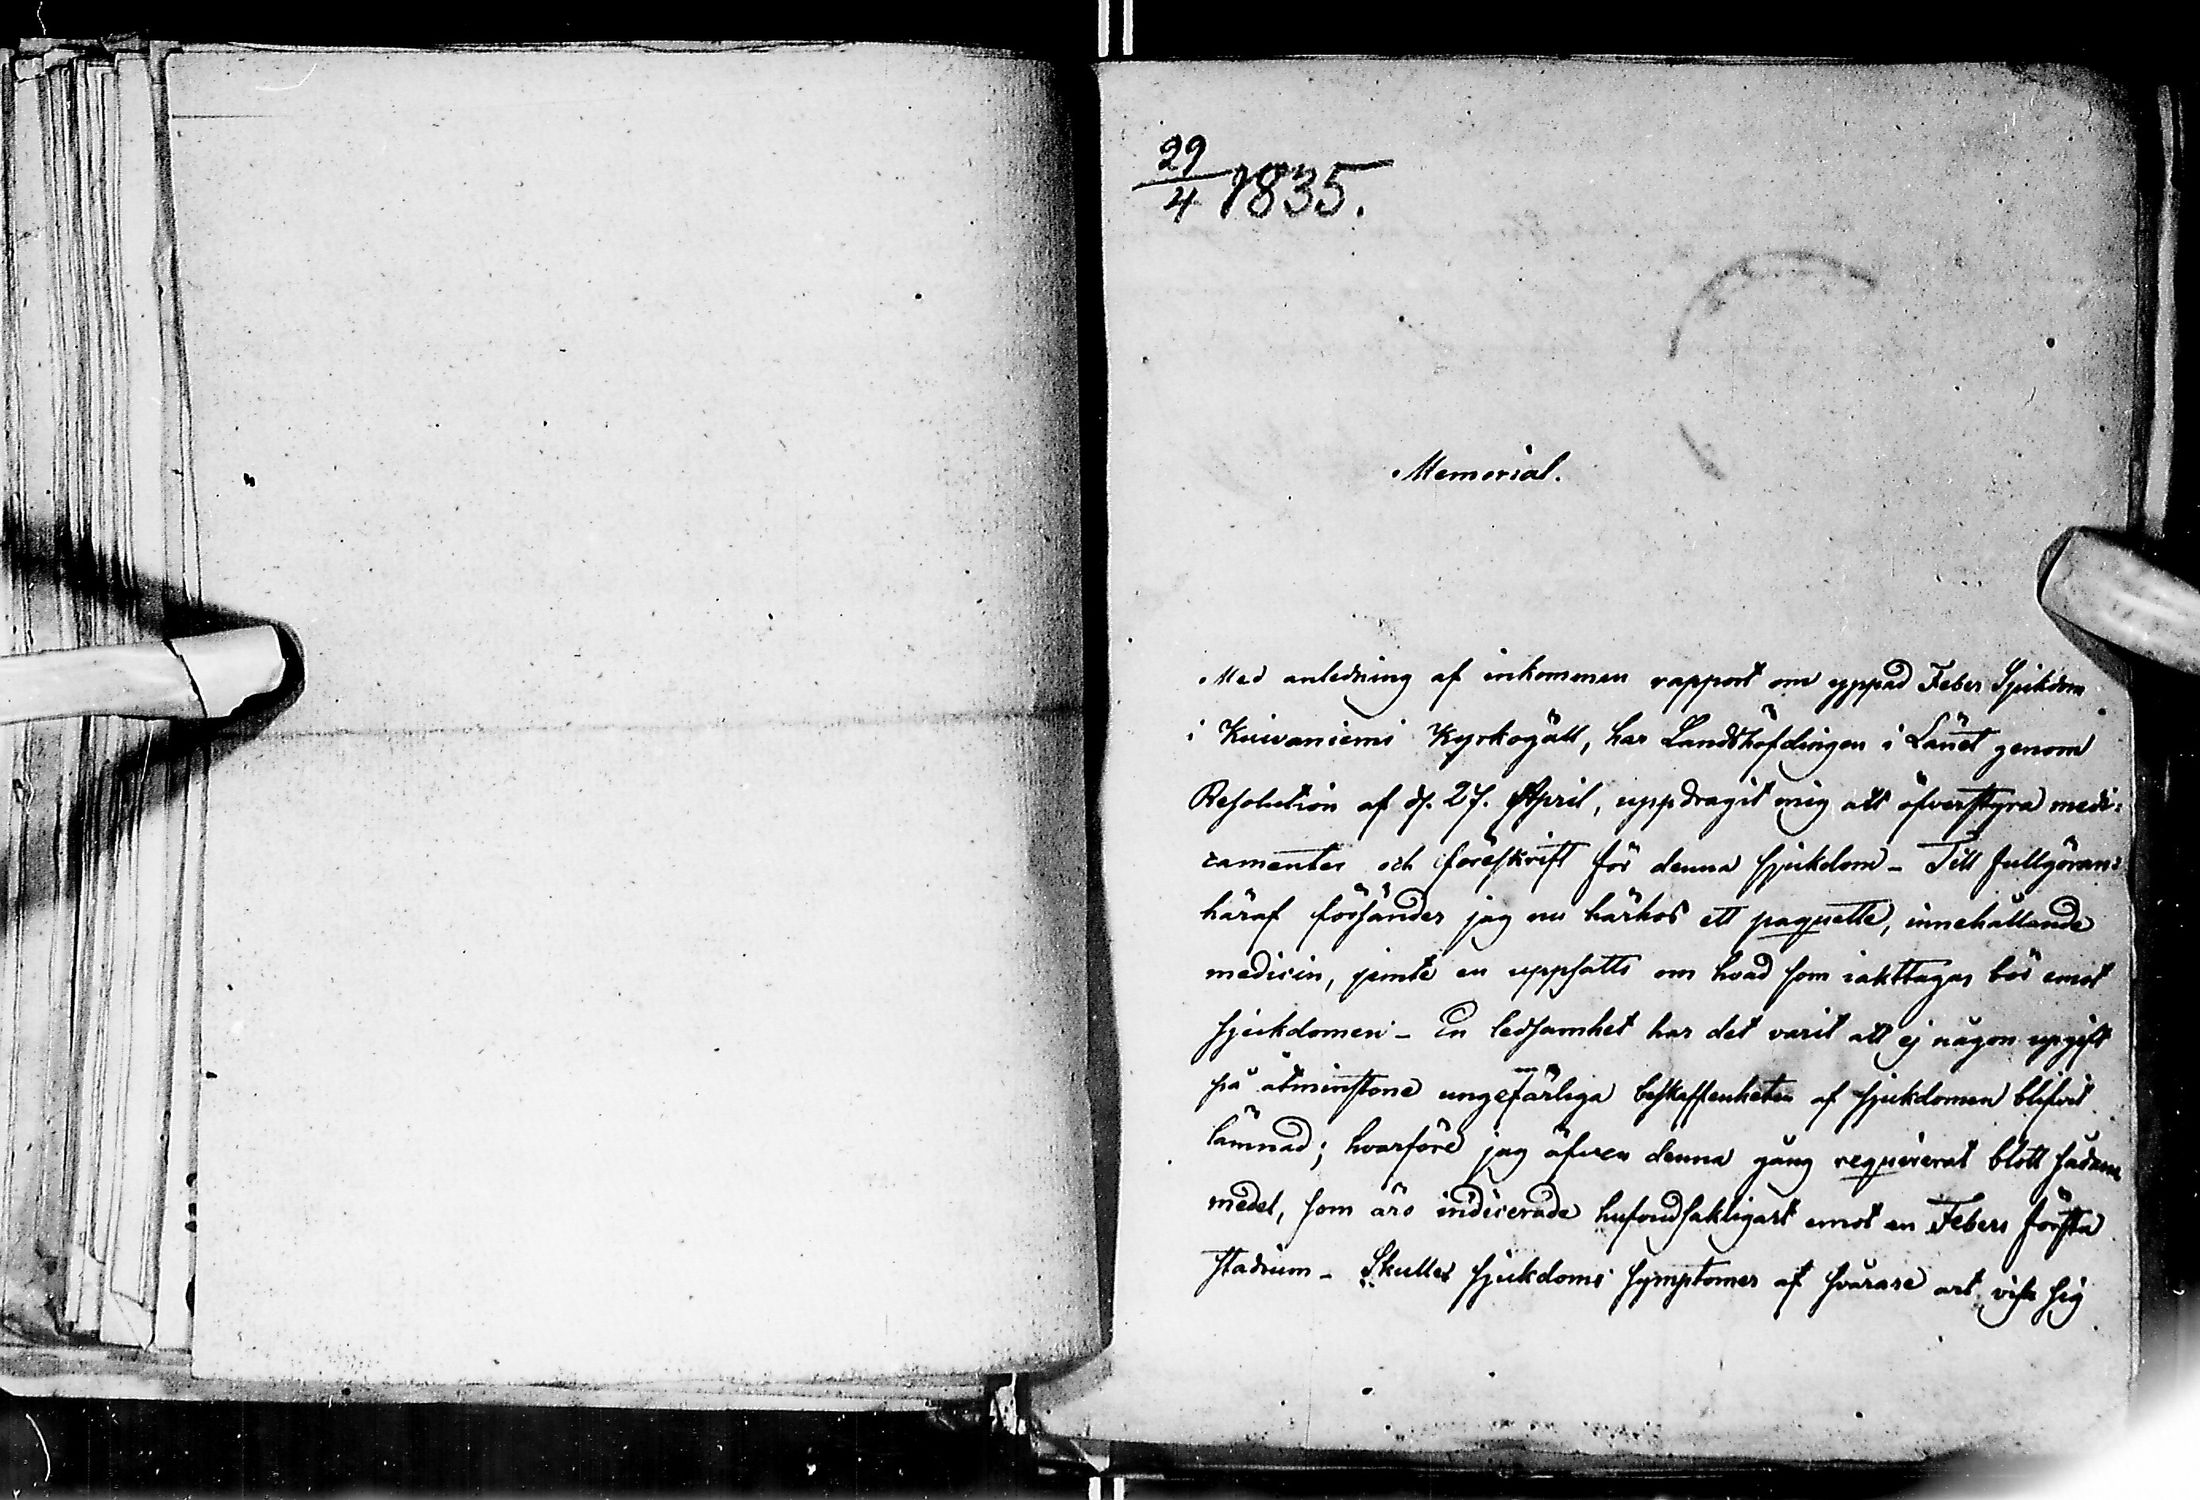 29/4 1835.
Memorial.
Med anledning af inkommen rapport om yppad Feber Sjukdom
i Kuivaniemi Kyrkogäll, har Landshöfdingen i Länet genom
Resolution af d. 27. April, uppdragit mig att öfverstyra medi=
camenter och föreskrift för denna sjukdom - Till fullgöran=
häraf försänder jag nu härhos ett paquette, innehållande
medicin, jemte en uppsatts om hvad som iakttagas bör emot
sjukdomen - En ledsamhet har det varit att ej någon upgift
på åtminstone ungefärliga beskaffenheten af sjukdomen blifvit
lämnad; hvarföre jag äfven denna gång requirerat blott sådana
medel, som äro indicerade hufvudsakligast emot en Febers första
stadium - Skulle sjukdoms symptomer af svårare art visa sig